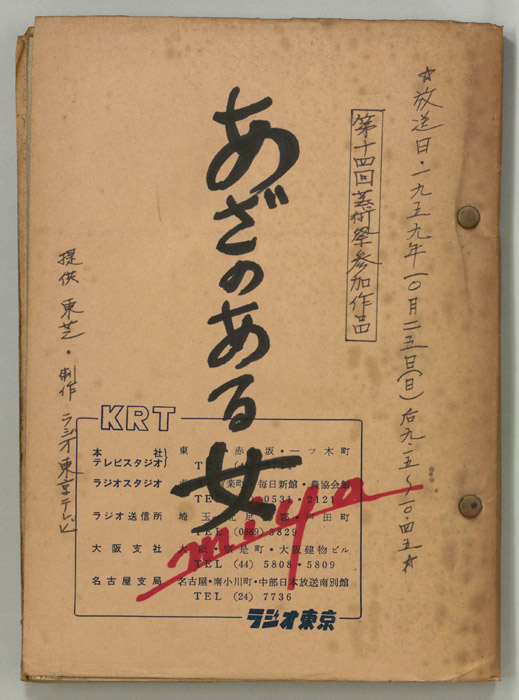 ☆放送日・一九五九年一〇月二五日(日)后九・一五～一〇・四五☆
第十四回芸術祭参加作品
あざのある女
提供 東芝・制作 ラジオ東京テレビ
KRT
本社 東 赤坂・一ツ木町
テレビスタジオ TEL
ラジオスタジオ 楽町 毎日新館・農協会館
TEL 0531・2121
ラジオ送信所 埼玉 北足 郡 戸田町
TEL (0889) 3829
大阪支社 大 町・大阪建物ビル
TEL (44) 5808・5809
名古屋支局 名古屋・南小川町・中部日本放送南別館
TEL (24) 7736
ラジオ東京